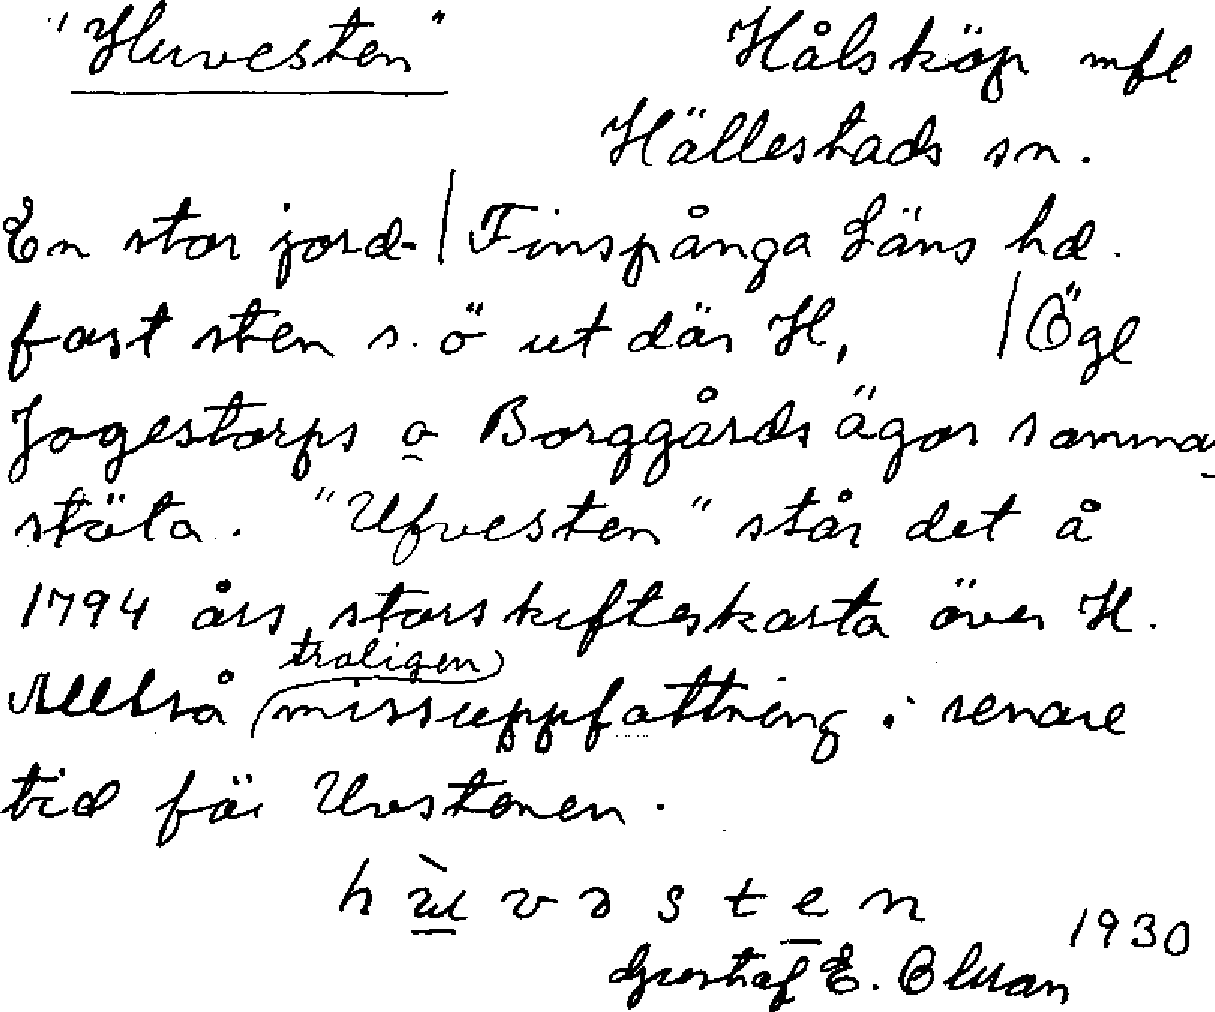 "Huvesten" Hålsköp mfl
Hällestads sn.
En stor jord-| Finspånga Läns hd.
fast sten s. ö ut där H, | Ögl
Jogestorps o Borggårds ägor samma-
stöta. "Ufvesten" står det å
1794 års storskifteskarta över H.
Alltså (troligen) missuppfattning i senare
tid för Uvstenen.
h u v ə s t e n
1930
Gustaf E. Olsson